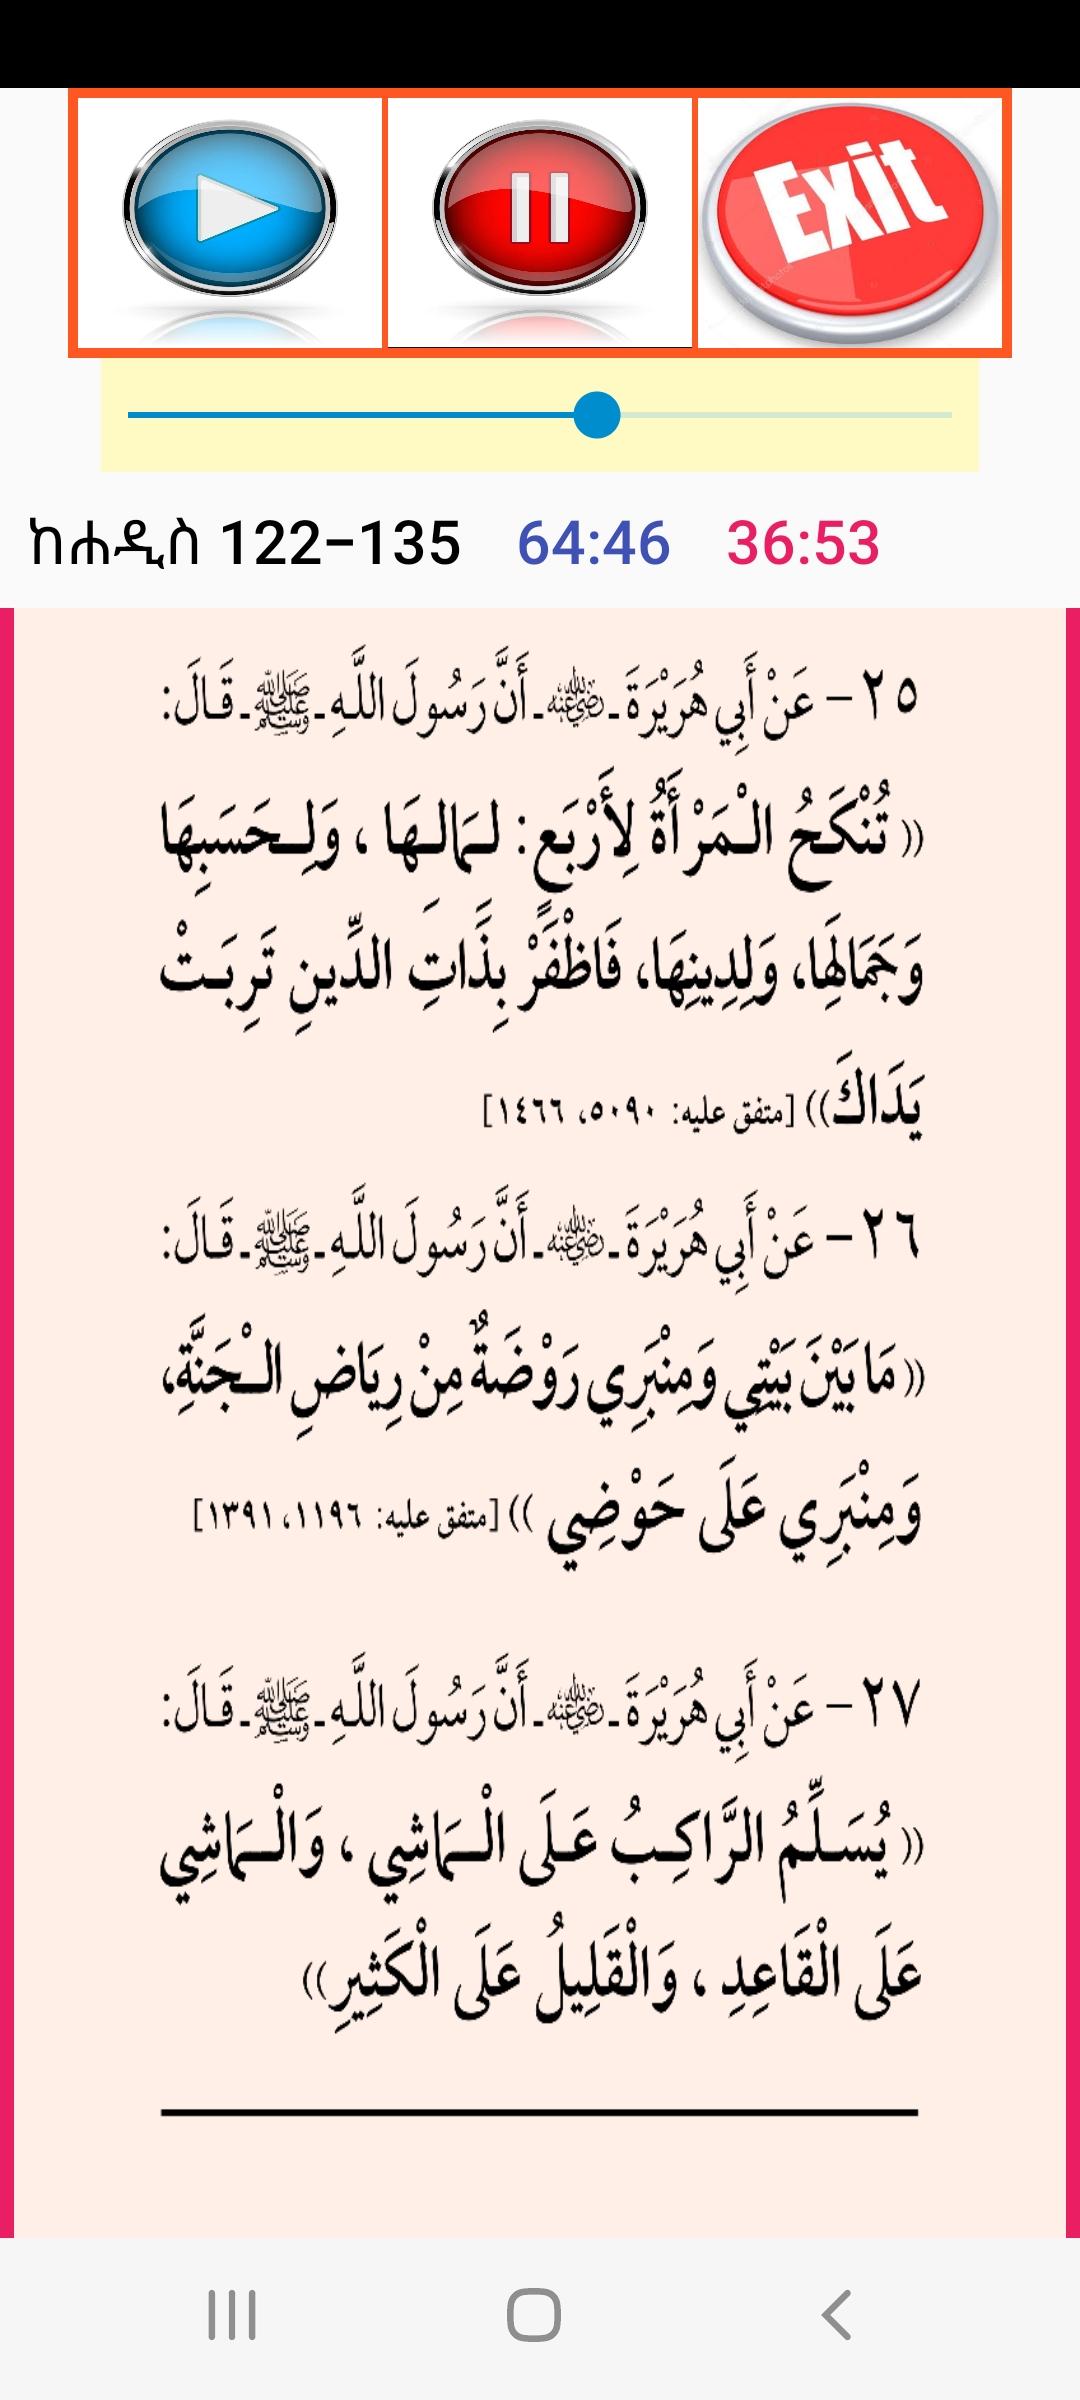 Exit
ከሐዲስ 122-135 64:46 36:53
٢٥ - عَنْ أَبِي هُرَيْرَةَ ـ رضي الله عنه ـ أَنَّ رَسُولَ اللَّهِ ـ ﷺ ـ قَالَ:
(( تُنْكَحُ الْمَرْأَةُ لِأَرْبَعٍ: لِمَالِهَا ، وَلِحَسَبِهَا
وَجَمَالِهَا، وَلِدِينِهَا، فَاظْفَرْ بِذَاتِ الدِّينِ تَرِبَتْ
يَدَاكَ)) [متفق عليه: ٥٠٩٠، ١٤٦٦]
٢٦ - عَنْ أَبِي هُرَيْرَةَ ـ رضي الله عنه ـ أَنَّ رَسُولَ اللَّهِ ـ ﷺ ـ قَالَ:
(( مَا بَيْنَ بَيْتِي وَمِنْبَرِي رَوْضَةٌ مِنْ رِيَاضِ الْجَنَّةِ،
وَمِنْبَرِي عَلَى حَوْضِي )) [متفق عليه: ١١٩٦، ١٣٩١]
٢٧ - عَنْ أَبِي هُرَيْرَةَ ـ رضي الله عنه ـ أَنَّ رَسُولَ اللَّهِ ـ ﷺ ـ قَالَ:
(( يُسَلِّمُ الرَّاكِبُ عَلَى الْمَاشِي ، وَالْمَاشِي
عَلَى الْقَاعِدِ ، وَالْقَلِيلُ عَلَى الْكَثِيرِ))